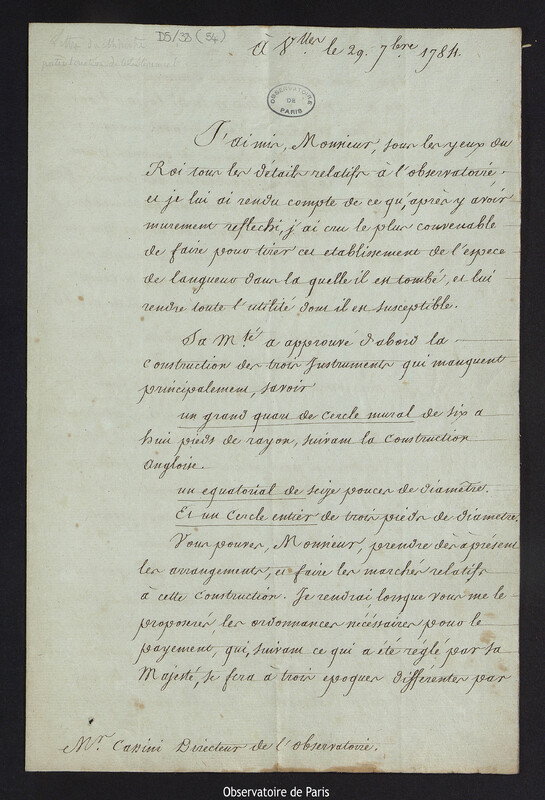 D5/38 (54)
À V.lles le 29. 7bre 1784.
OBSERVATOIRE DE PARIS
J'ai mis, Monsieur, sous les yeux du
Roi tous les détails relatifs à l'observatoire
et je lui ai rendu compte de ce qu'après y avoir
murement reflechi, j'ai cru le plus convenable
de faire pour tirer cet etablissement de l'espece
de langueur dans la quelle il est tombé, et lui
rendre toute l'utilité dont il est susceptible.
Sa M.té a approuvé d'abord la
construction des trois Instruments qui manquent
principalement, savoir
un grand quart de cercle mural de six a
huit pieds de rayon, suivant la construction
angloise.
un equatorial de seize pouces de diametre.
Et un cercle entier de trois pieds de diametre.
Vous pouves, Monsieur, prendre dès àprésent
les arrangements, et faire les marchés relatifs
à cette construction. Je rendrai, lorsque vous me le
proposerés, les ordonnances nécéssaires pour le
payement, qui, suivant ce qui a été réglé par sa
Majesté, se fera à trois epoques differentes par
Mr. Cassini Directeur de l'observatoire.
Observatoire de Paris